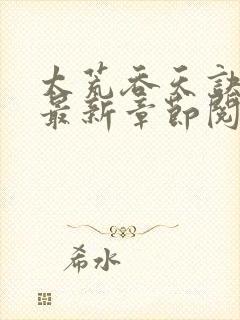 大荒吞天诀
最新章节阅
希水